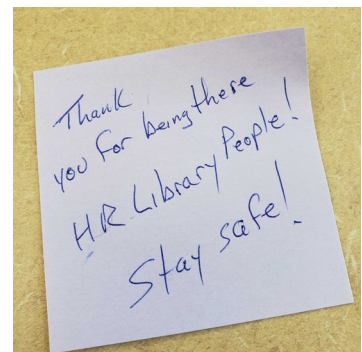 Thank
you for being there
HR Library People!
Stay safe!